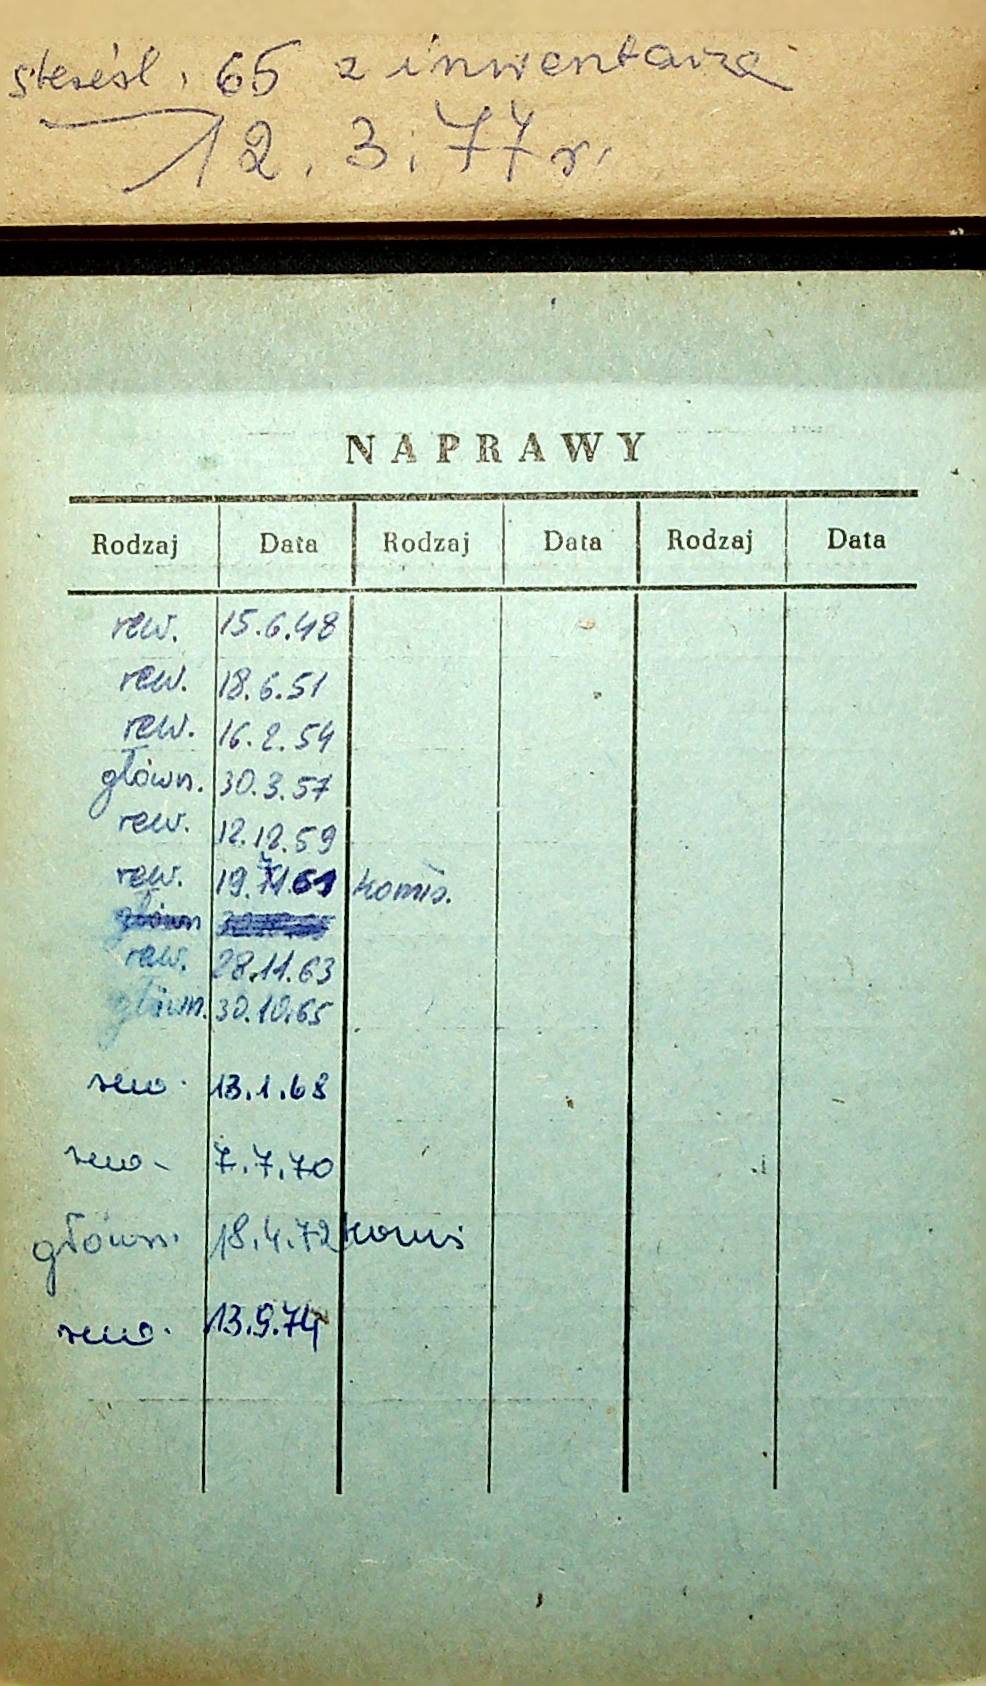 skreśl. 65 z inwentarza
12.3.77 r.
NAPRAWY
Rodzaj Data Rodzaj Data Rodzaj Data
rew. 15.6.48
rew. 18.6.51
rew. 16.2.54
główn. 30.3.57
rew. 12.12.59
rew. 19. 61 komis.
główn
rew. 28.11.63
główn. 30.10.65
rew. 13.1.68
rew. 7.7.70
główn. 18.4.72 komis
rew. 13.9.74